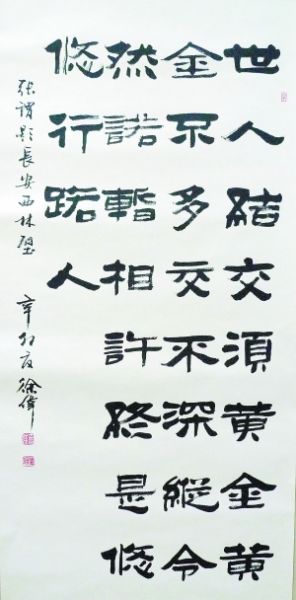 世人結交須黄金黄
金不多交不深縱令
然諾暫相許終是悠
悠行路人
张谓题長安西林壁 辛卯夏徐偉